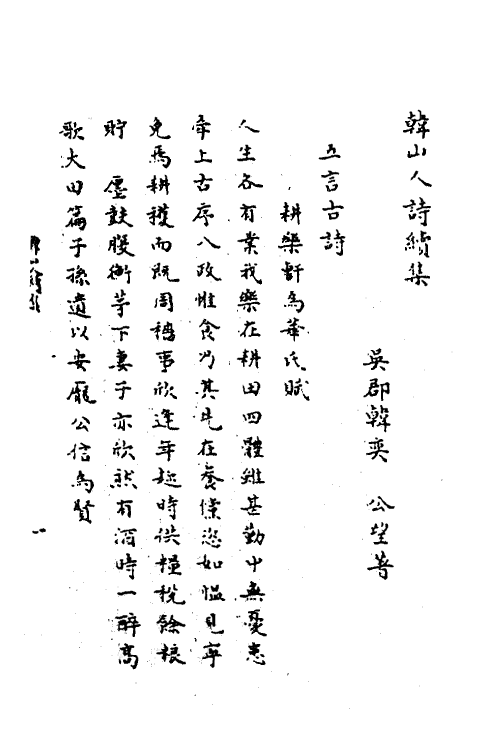 韓山人詩續集
吳郡韓奕 公望著
五言古詩
耕樂軒為華氏賦
人生各有業我樂在耕田四體雖甚勤中無憂患
牽上古序八政惟食乃其先在養儻恐如愠見寧
免焉耕穫而既周穡事欣逢年趍時供糧稅餘粮
貯 廛鼓腹衡茅下妻子亦欣然有酒時一醉高
歌大田篇子孫遺以安龐公信為賢
一